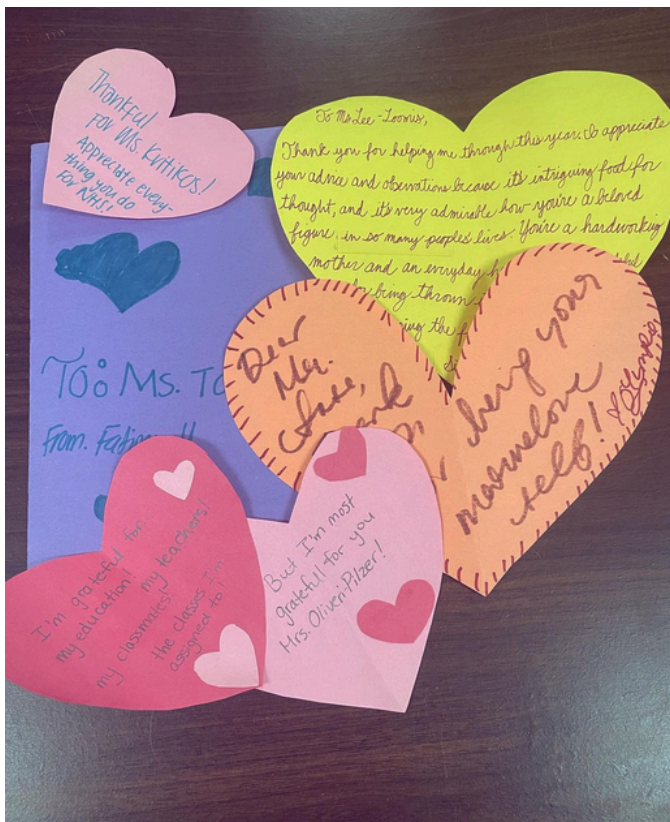 Thankful
For Ms. Kritikos!
Appreciate every-
thing you do
For NHS!
To Ms. Lee-Loomis,
Thank you for helping me through this year. I appreciate
your advice and observations because it's intriguing food for
thought, and it's very admirable how you're a beloved
figure in so many people's lives. You're a hardworking
mother and an everyday
being thrown
the
To: Ms.
From:
Dear
Ms.
being your
marvelove
self!
I'm grateful for
my education!
my teachers!
my classmates!
the classes I'm
assigned to!
But I'm most
grateful for you
Mrs. Oliveri-Pilzer!